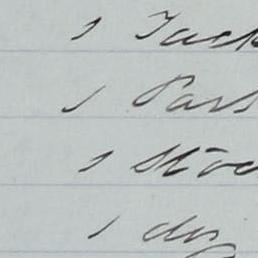 1 Jack
1 Pars
1 Stoc
1 do